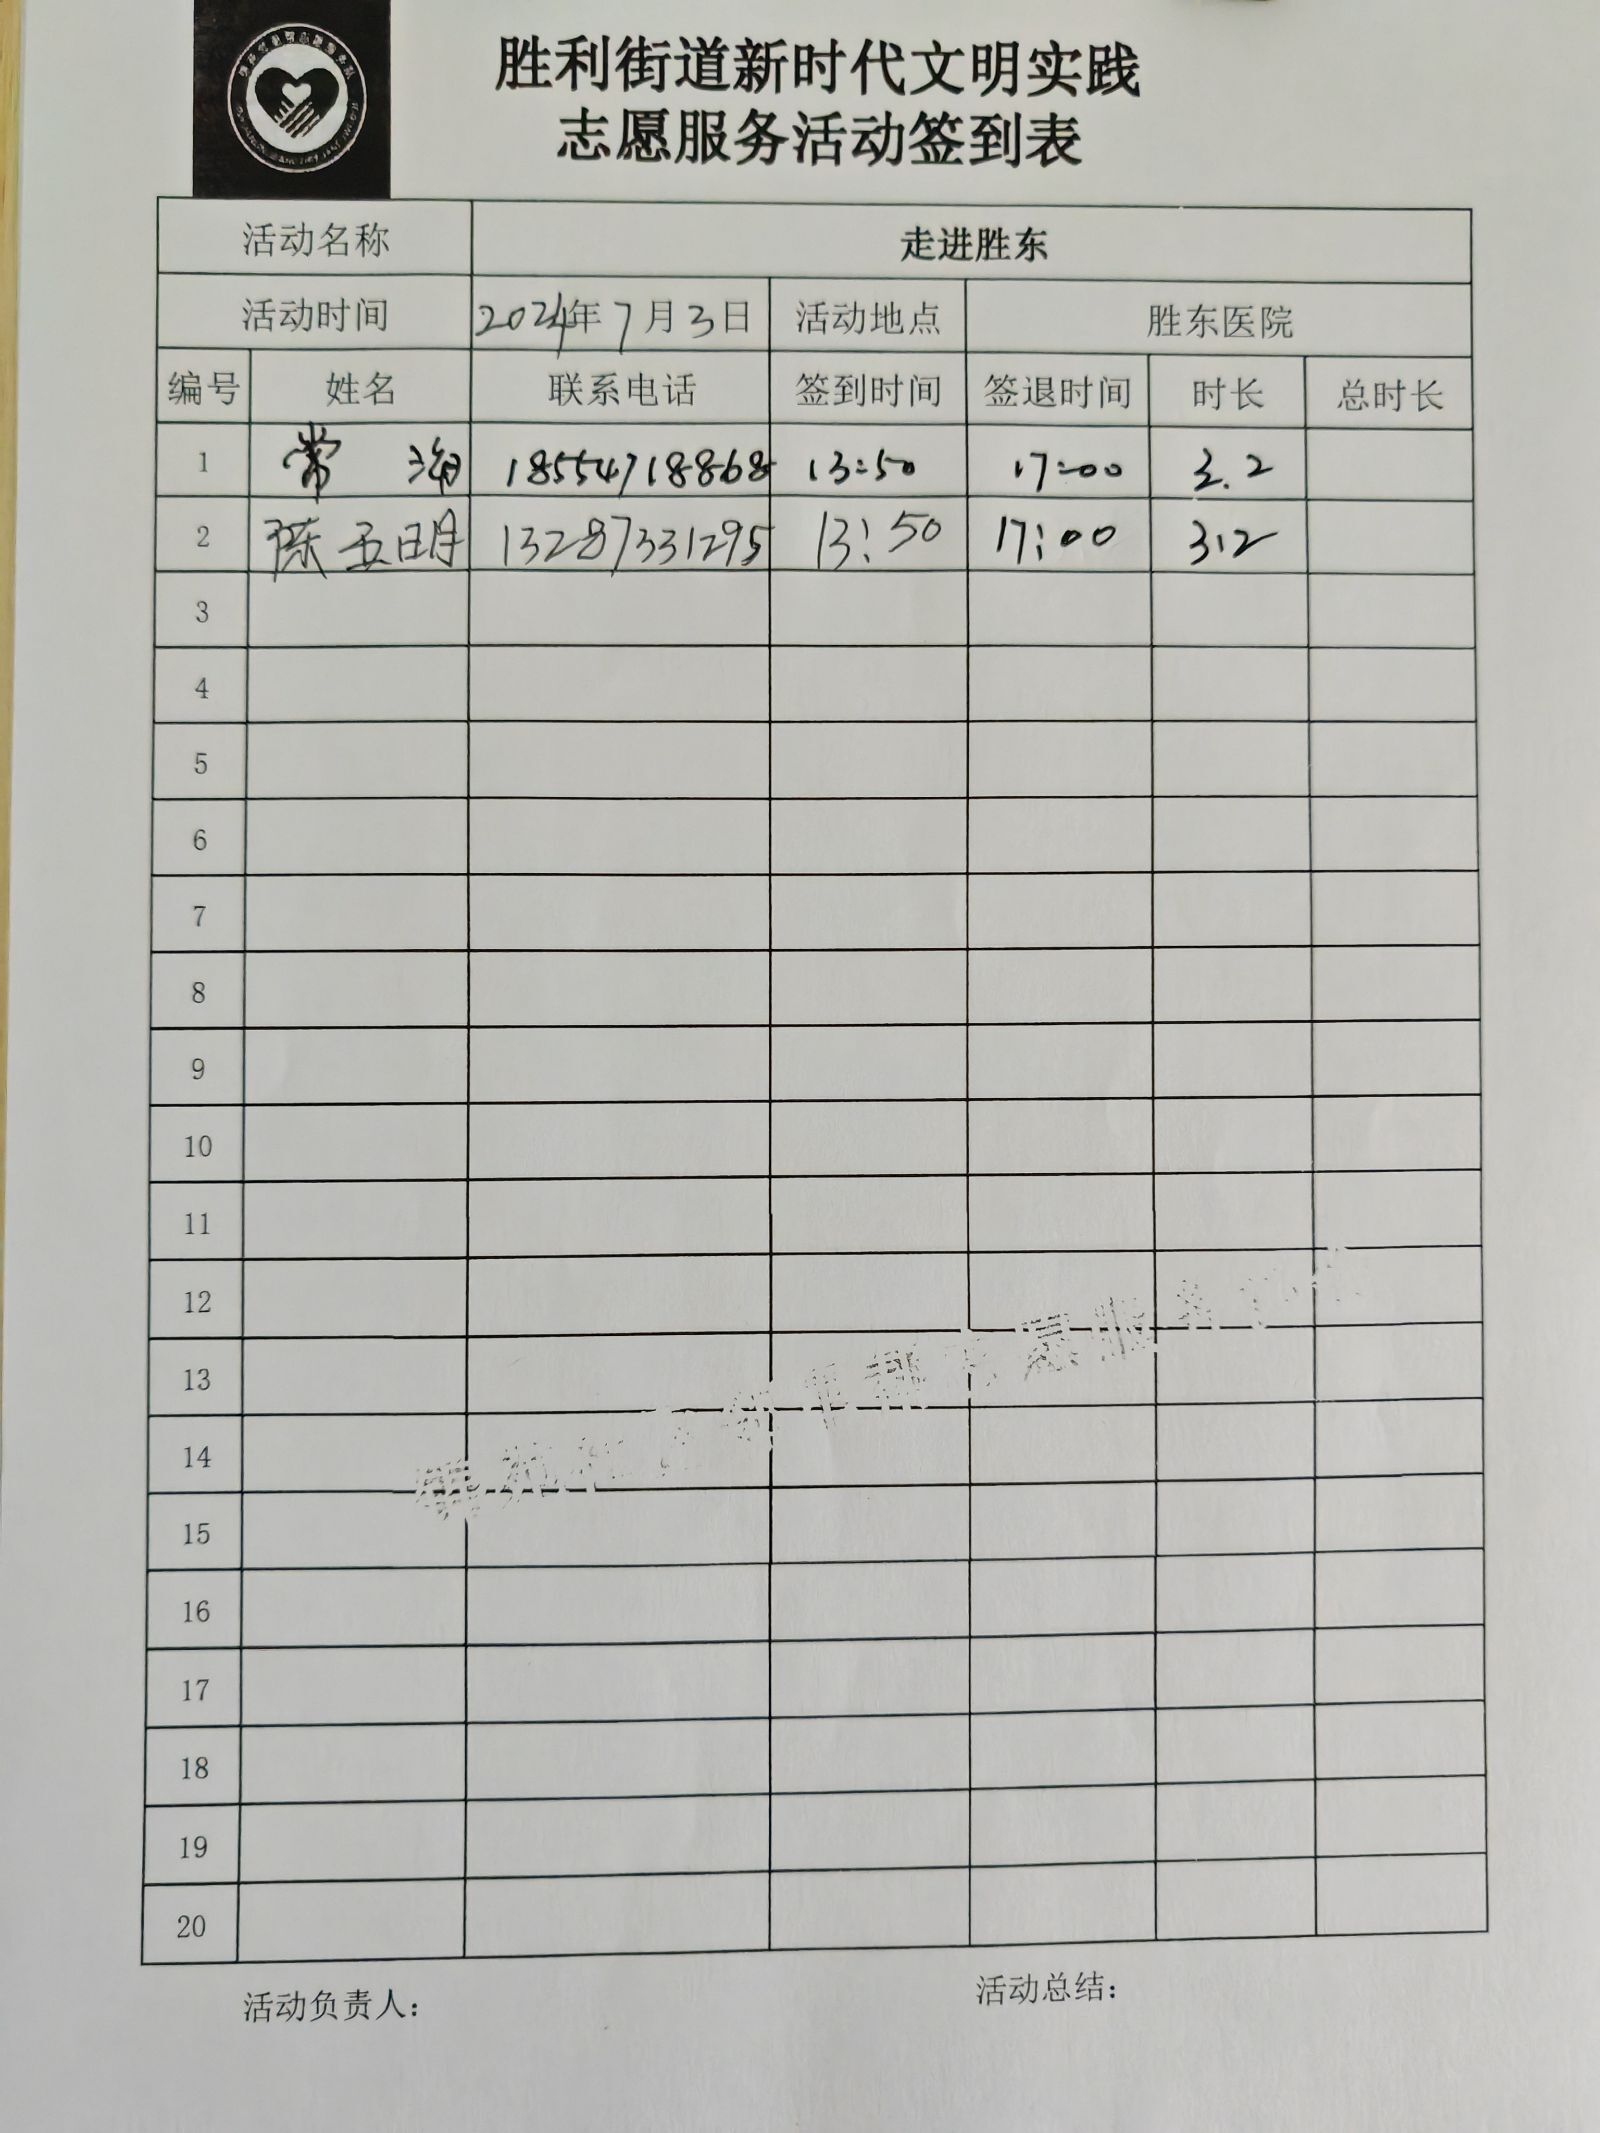 胜利街道新时代文明实践
志愿服务活动签到表
活动名称 走进胜东
活动时间 2024年7月3日 活动地点 胜东医院
编号 姓名 联系电话 签到时间 签退时间 时长 总时长
1 常海 18554718868 13:50 17:00 3.2
2 陈玉明 13287331295 13:50 17:00 3.2
3
4
5
6
7
8
9
10
11
12
13
14
15
16
17
18
19
20
活动负责人： 活动总结：